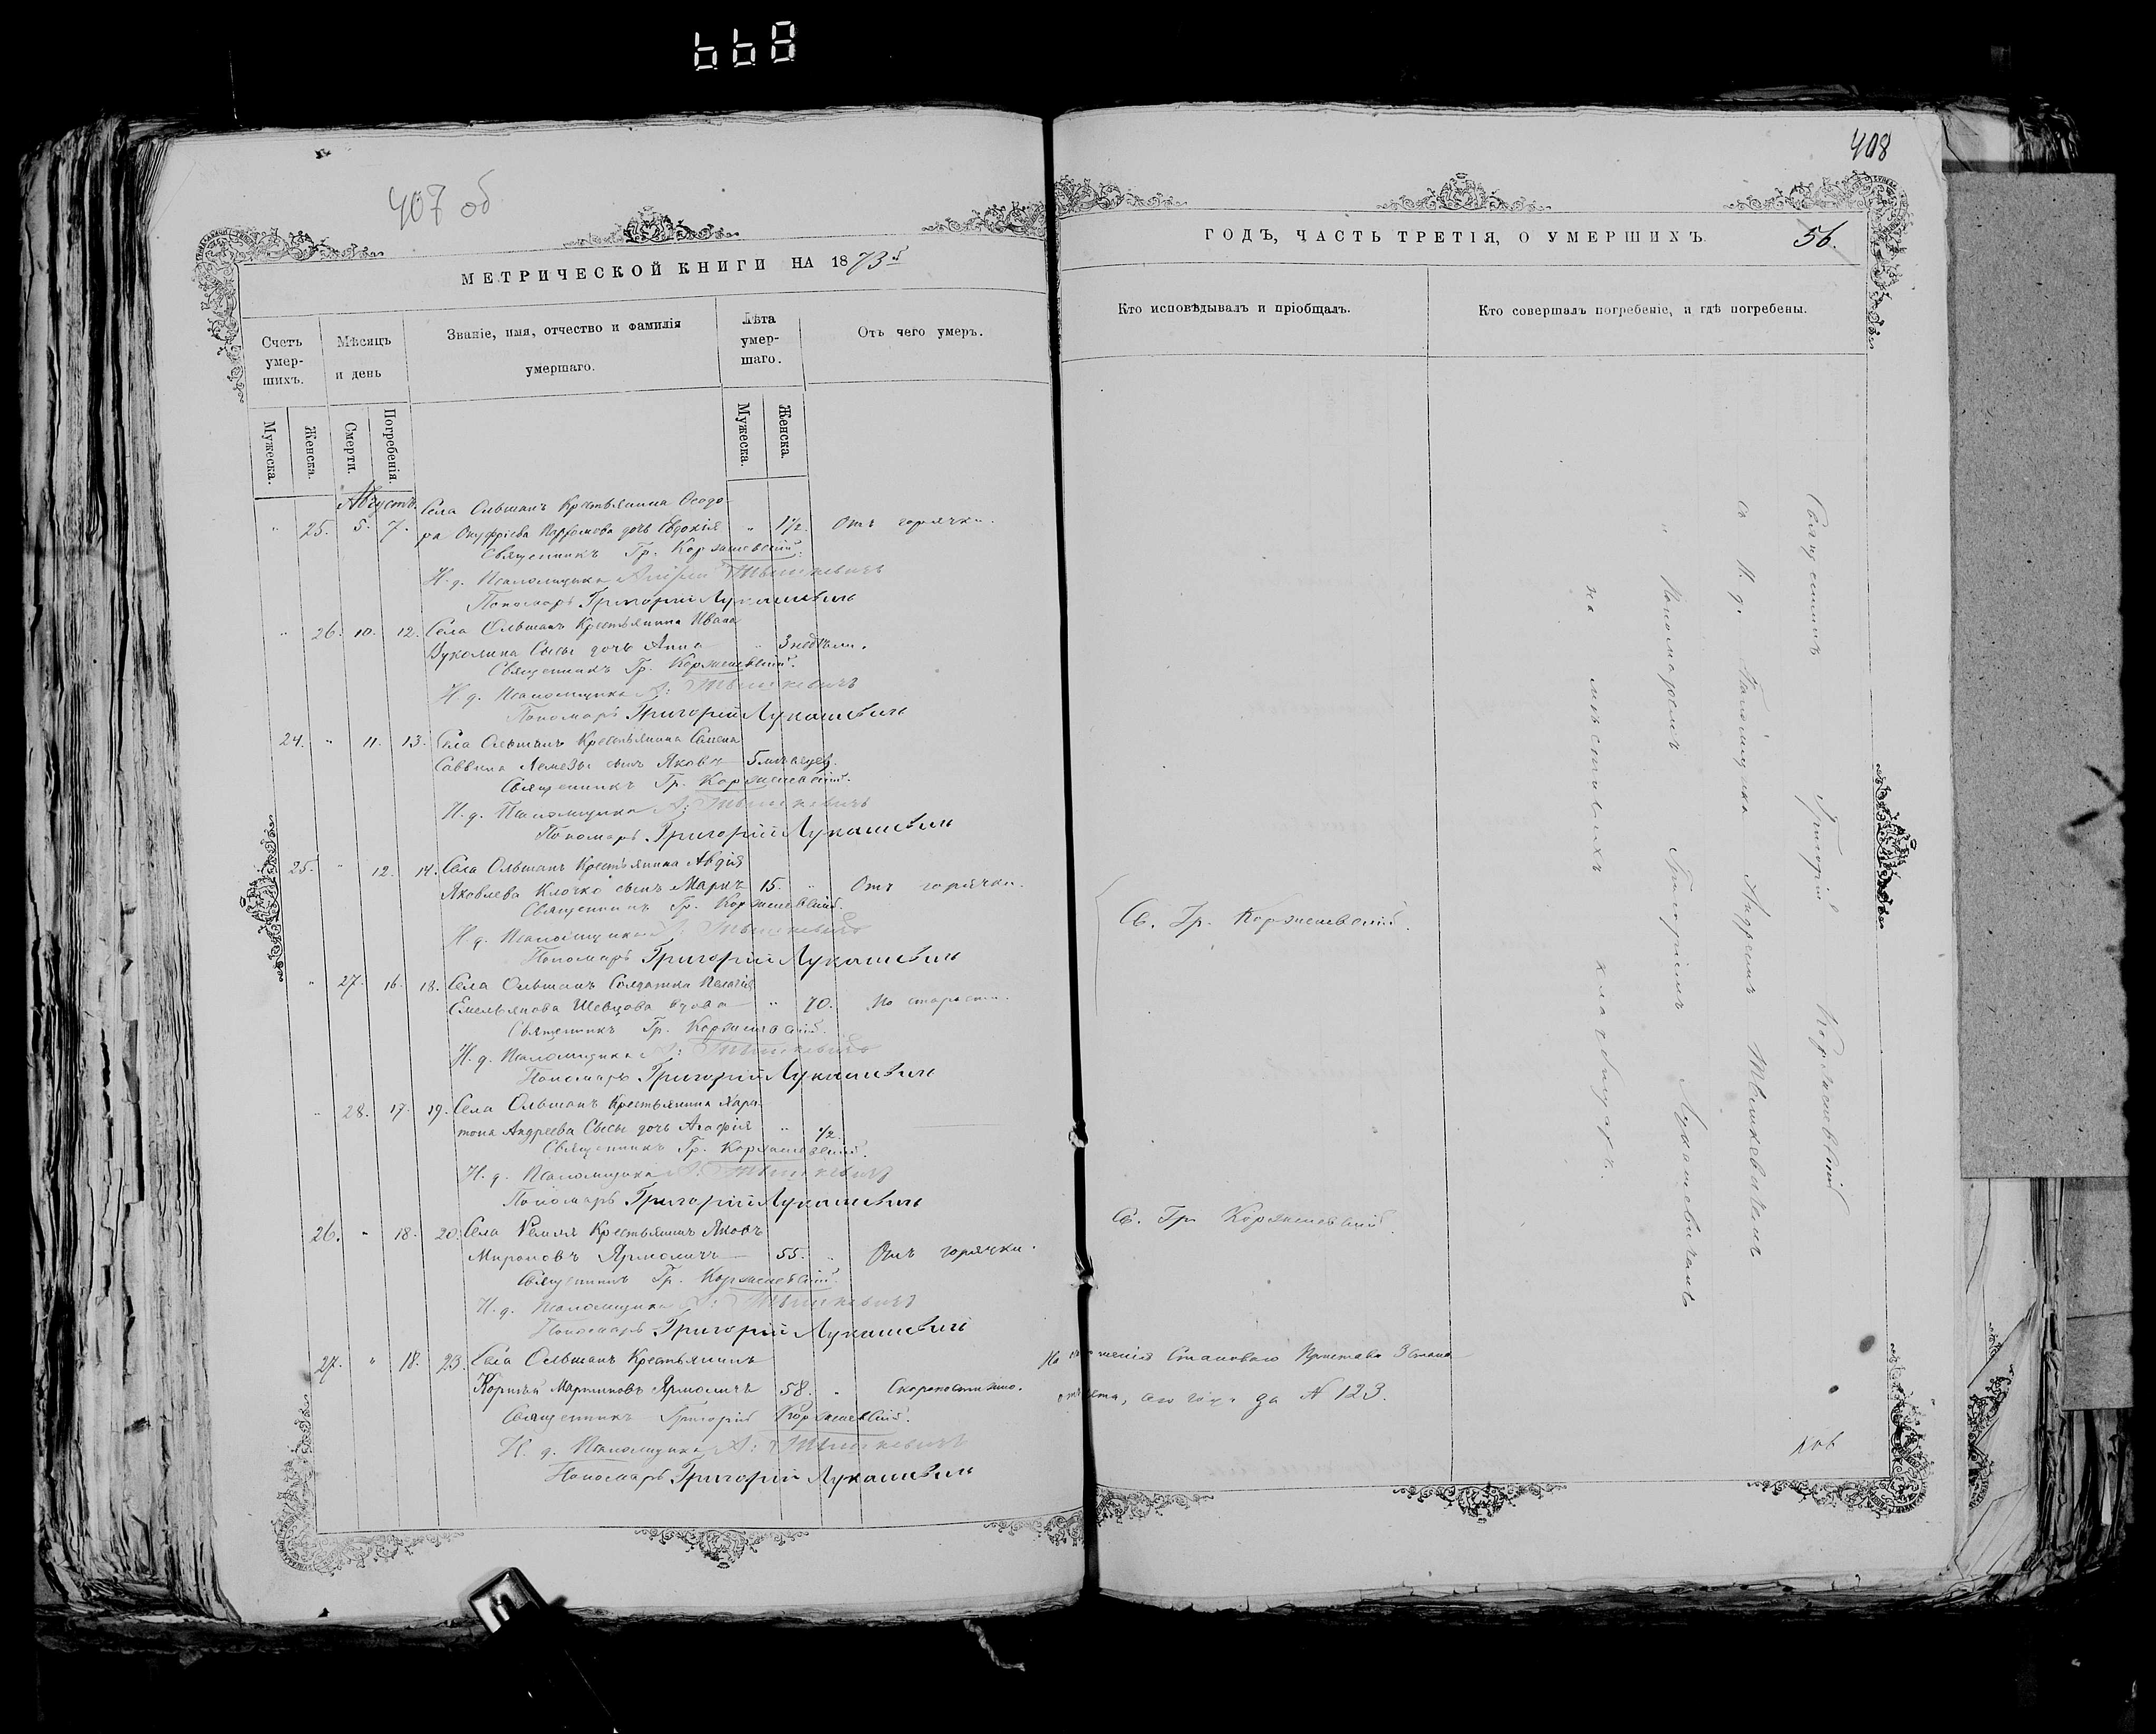 668
407 об
МЕТРИЧЕСКОЙ КНИГИ НА 1873й
Счетъ умер-шихъ.
Мѣсяцъ и день
Званіе, имя, отчество и фамилія умершаго.
Лѣта умер-шаго.
Отъ чего умеръ.
Мужеска.
Женска.
Смерти.
Погребенія.
Мужеска.
Женска.
Августъ
Села Ольшанъ Крестьянина Ѳеодо-
" 25. 5. 7. ра Онуфріева Парфомова дочь Евдокія " 1½. Отъ горячки.
Священникъ Гр. Корженевскій.
И. д. Псаломщика Андрей Тышкевичъ
Пономарь Григорій Лукашевичъ
" 26. 10. 12. Села Ольшанъ Крестьянина Ивана
Вуколина Сысы дочь Анна " 3 недѣли.
Священникъ Гр. Корженевскій.
И. д. Псаломщика А: Тышкевичъ
Пономарь Григорій Лукашевичъ
24. " 11. 13. Села Ольшанъ Крестьянина Семена
Саввина Лемезы сынъ Яковъ 5 мѣсяцев.
Священникъ Гр. Корженевскій.
И. д. Псаломщика А: Тышкевичъ
Пономарь Григорій Лукашевичъ
25. " 12. 14. Села Ольшанъ Крестьянина Авдія
Яковлева Клочко сынъ Маркъ 15. " Отъ горячки.
Священникъ Гр. Корженевскій.
И. д. Псаломщика А: Тышкевичъ
Пономарь Григорій Лукашевичъ
" 27. 16. 18. Села Ольшанъ Солдатка Пелагія
Емельянова Шевцова вдова " 70. По старости.
Священникъ Гр. Корженевскій.
И. д. Псаломщика А: Тышкевичъ
Пономарь Григорій Лукашевичъ
" 28. 17. 19. Села Ольшанъ Крестьянина Хари-
тона Андреева Сысы дочь Агафія " ½.
Священникъ Гр. Корженевскій.
И. д. Псаломщика А: Тышкевичъ
Пономарь Григорій Лукашевичъ
26. " 18. 20. Села Крестьянинъ Яковъ
Мироновъ Ярмоличъ 55. " Отъ горячки.
Священникъ Гр. Корженевскій.
И. д. Псаломщика А: Тышкевичъ
Пономарь Григорій Лукашевичъ
27. " 18. 23. Села Ольшанъ Крестьянинъ
Корнѣй Мартиновъ Ярмоличъ 58. " Скоропостижно.
Священникъ Григорій Корженевскій.
И. д. Псаломщика А: Тышкевичъ
Пономарь Григорій Лукашевичъ
408
ГОДЪ, ЧАСТЬ ТРЕТІЯ, О УМЕРШИХЪ.
56.
Кто исповѣдывалъ и пріобщалъ.
Кто совершалъ погребеніе, и гдѣ погребены.
Св. Гр. Корженевскій.
Св. Гр. Корженевскій.
Становаго Пристава 3 стана
за № 123.
Священникъ Григорій Корженевскій
съ И. д. Псаломщика Андреемъ Тышкевичемъ
и Пономаремъ Григоріемъ Лукашевичемъ
на мѣстныхъ кладбищахъ.